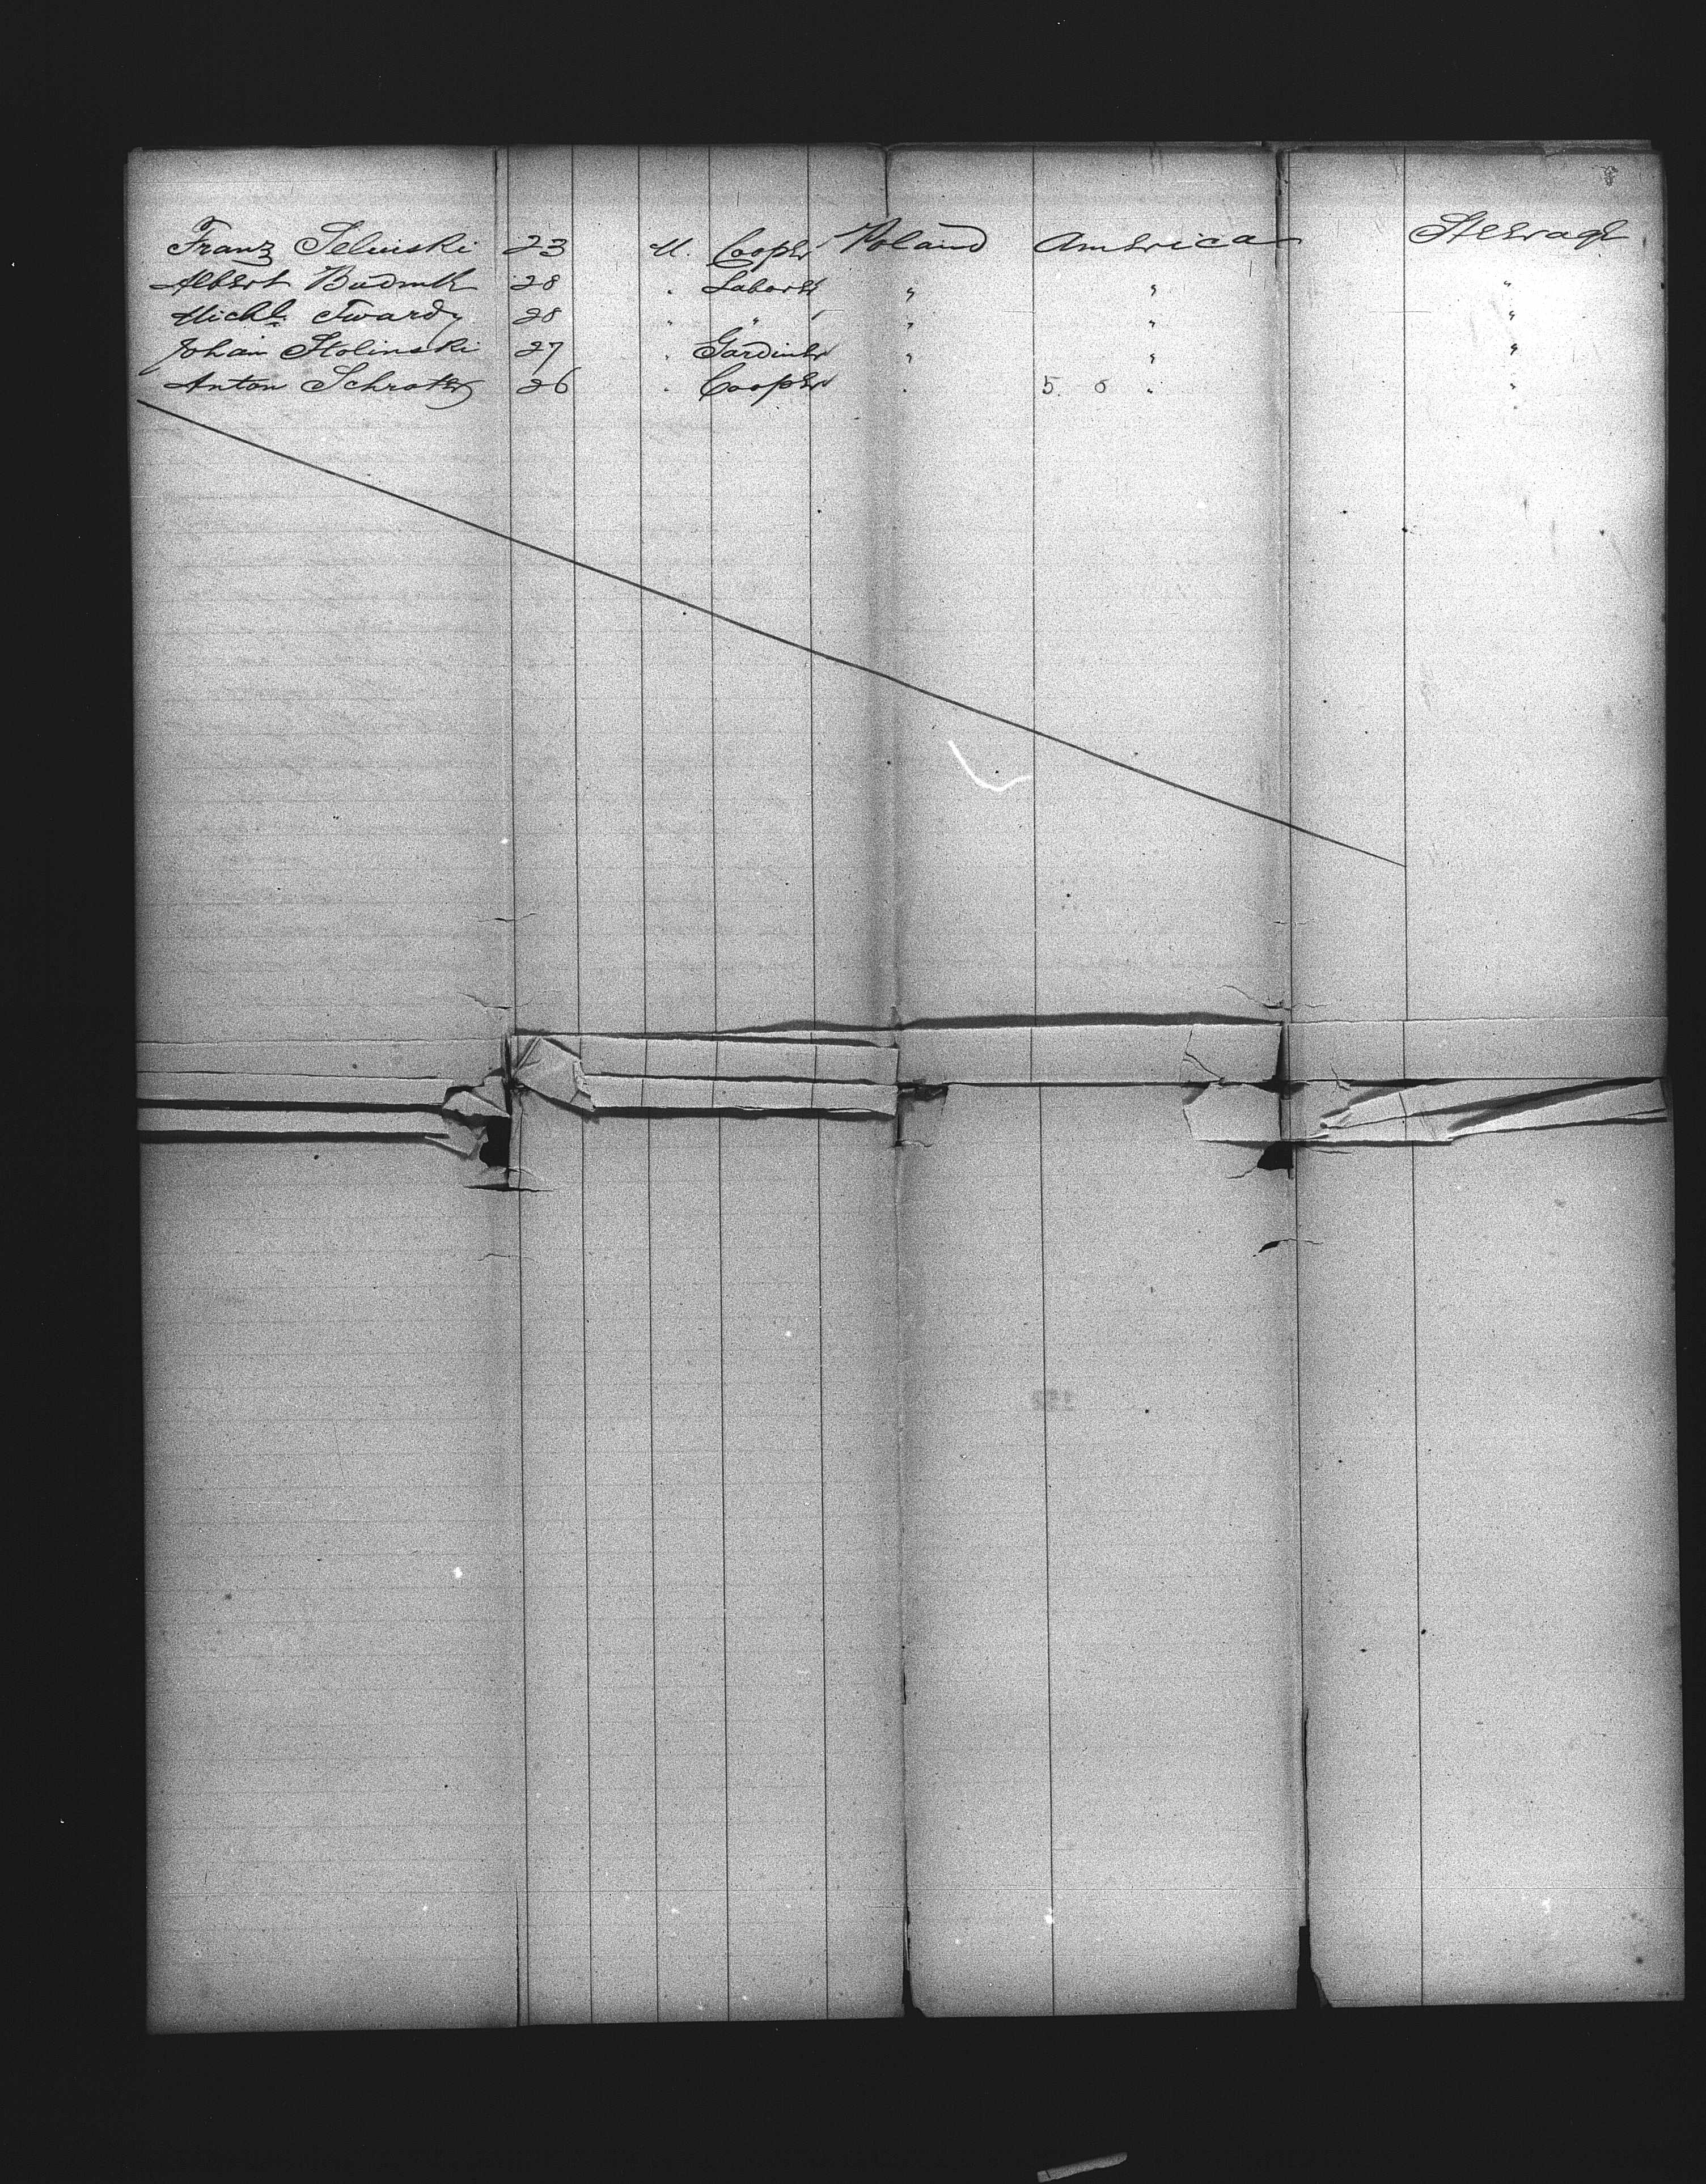 Franz Selinski 23 M. Cooper Poland America Steerage
Albert Budnik 28 " Laborer " " "
Michl. Twardy 28 " " " " "
Johan Stolinski 27 " Gardiner " " "
Anton Schroter 26 " Cooper " 5 0 " "